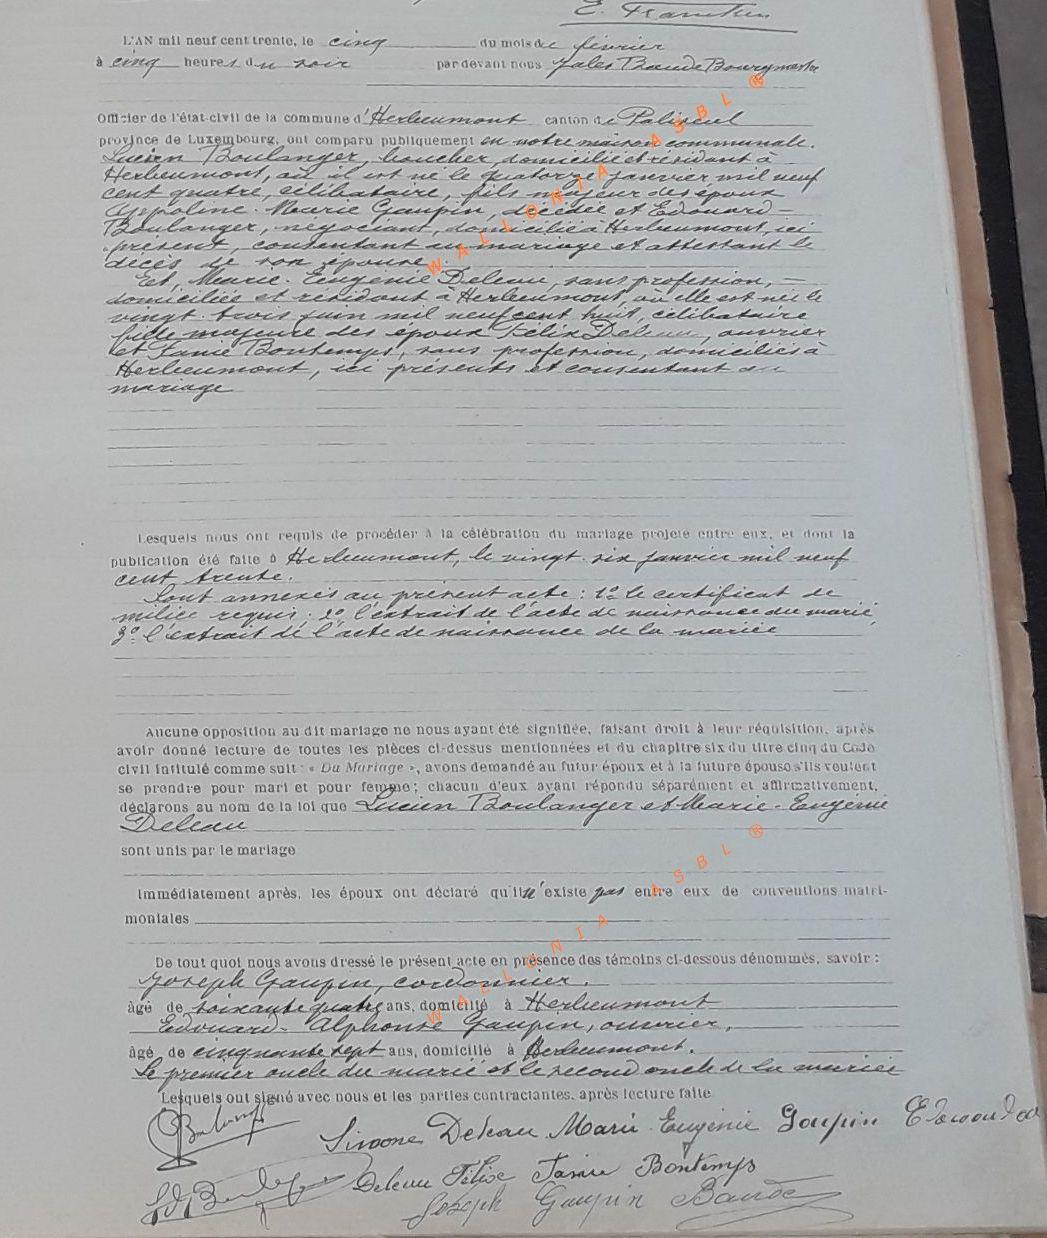 L'AN mil neuf cent trente, le cinq du mois de février
à cinq heures du soir par devant nous Jules Baude Bourgmestre
Officier de l'état-civil de la commune d'Herbeumont canton de Paliseul
province de Luxembourg, ont comparu publiquement en notre maison communale.
Lucien Boulanger, boucher, domicilié et résidant à
Herbeumont, où il est né le quatorze janvier mil neuf
cent quatre, célibataire, fils majeur des époux
Marie Gaupin, décédée et Edouard
Boulanger, négociant, domicilié à Herbeumont, ici
présent, consentant au mariage et attestant le
décès de son épouse.
Et, Marie-Eugénie Deleau, sans profession,
domiciliée et résidant à Herbeumont, où elle est née le
vingt-trois juin mil neuf cent huit, célibataire
fille majeure des époux Félix Deleau, ouvrier
et Fanie Bontemps, sans profession, domiciliés à
Herbeumont, ici présents et consentant au
mariage
Lesquels nous ont requis de procéder à la célébration du mariage projeté entre eux, et dont la
publication été faite à Herbeumont, le vingt-six janvier mil neuf
cent trente.
Sont annexés au présent acte : 1º le certificat de
milice requis. 2º l'extrait de l'acte de naissance du marié,
3º l'extrait de l'acte de naissance de la mariée
Aucune opposition au dit mariage ne nous ayant été signifiée, faisant droit à leur réquisition, après
avoir donné lecture de toutes les pièces ci-dessus mentionnées et du chapitre six du titre cinq du Code
civil intitulé comme suit : « Du Mariage », avons demandé au futur époux et à la future épouse s'ils veulent
se prendre pour mari et pour femme ; chacun d'eux ayant répondu séparément et affirmativement,
déclarons au nom de la loi que Lucien Boulanger et Marie-Eugénie
Deleau
sont unis par le mariage
Immédiatement après, les époux ont déclaré qu'il n'existe pas entre eux de conventions matri-
moniales
De tout quoi nous avons dressé le présent acte en présence des témoins ci-dessous dénommés, savoir :
Joseph Gaupin, cordonnier.
âgé de soixante quatre ans, domicilié à Herbeumont
Edouard-Alphonse Gaupin, ouvrier,
âgé de cinquante sept ans, domicilié à Herbeumont.
Le premier oncle du marié et le second oncle de la mariée
Lesquels ont signé avec nous et les parties contractantes, après lecture faite
Simone Deleau Marie-Eugénie Gaupin Edouard
Deleau Félix Fanie Bontemps
Joseph Gaupin Baude
WALLONIA ASBL ®
WALLONIA ASBL ®